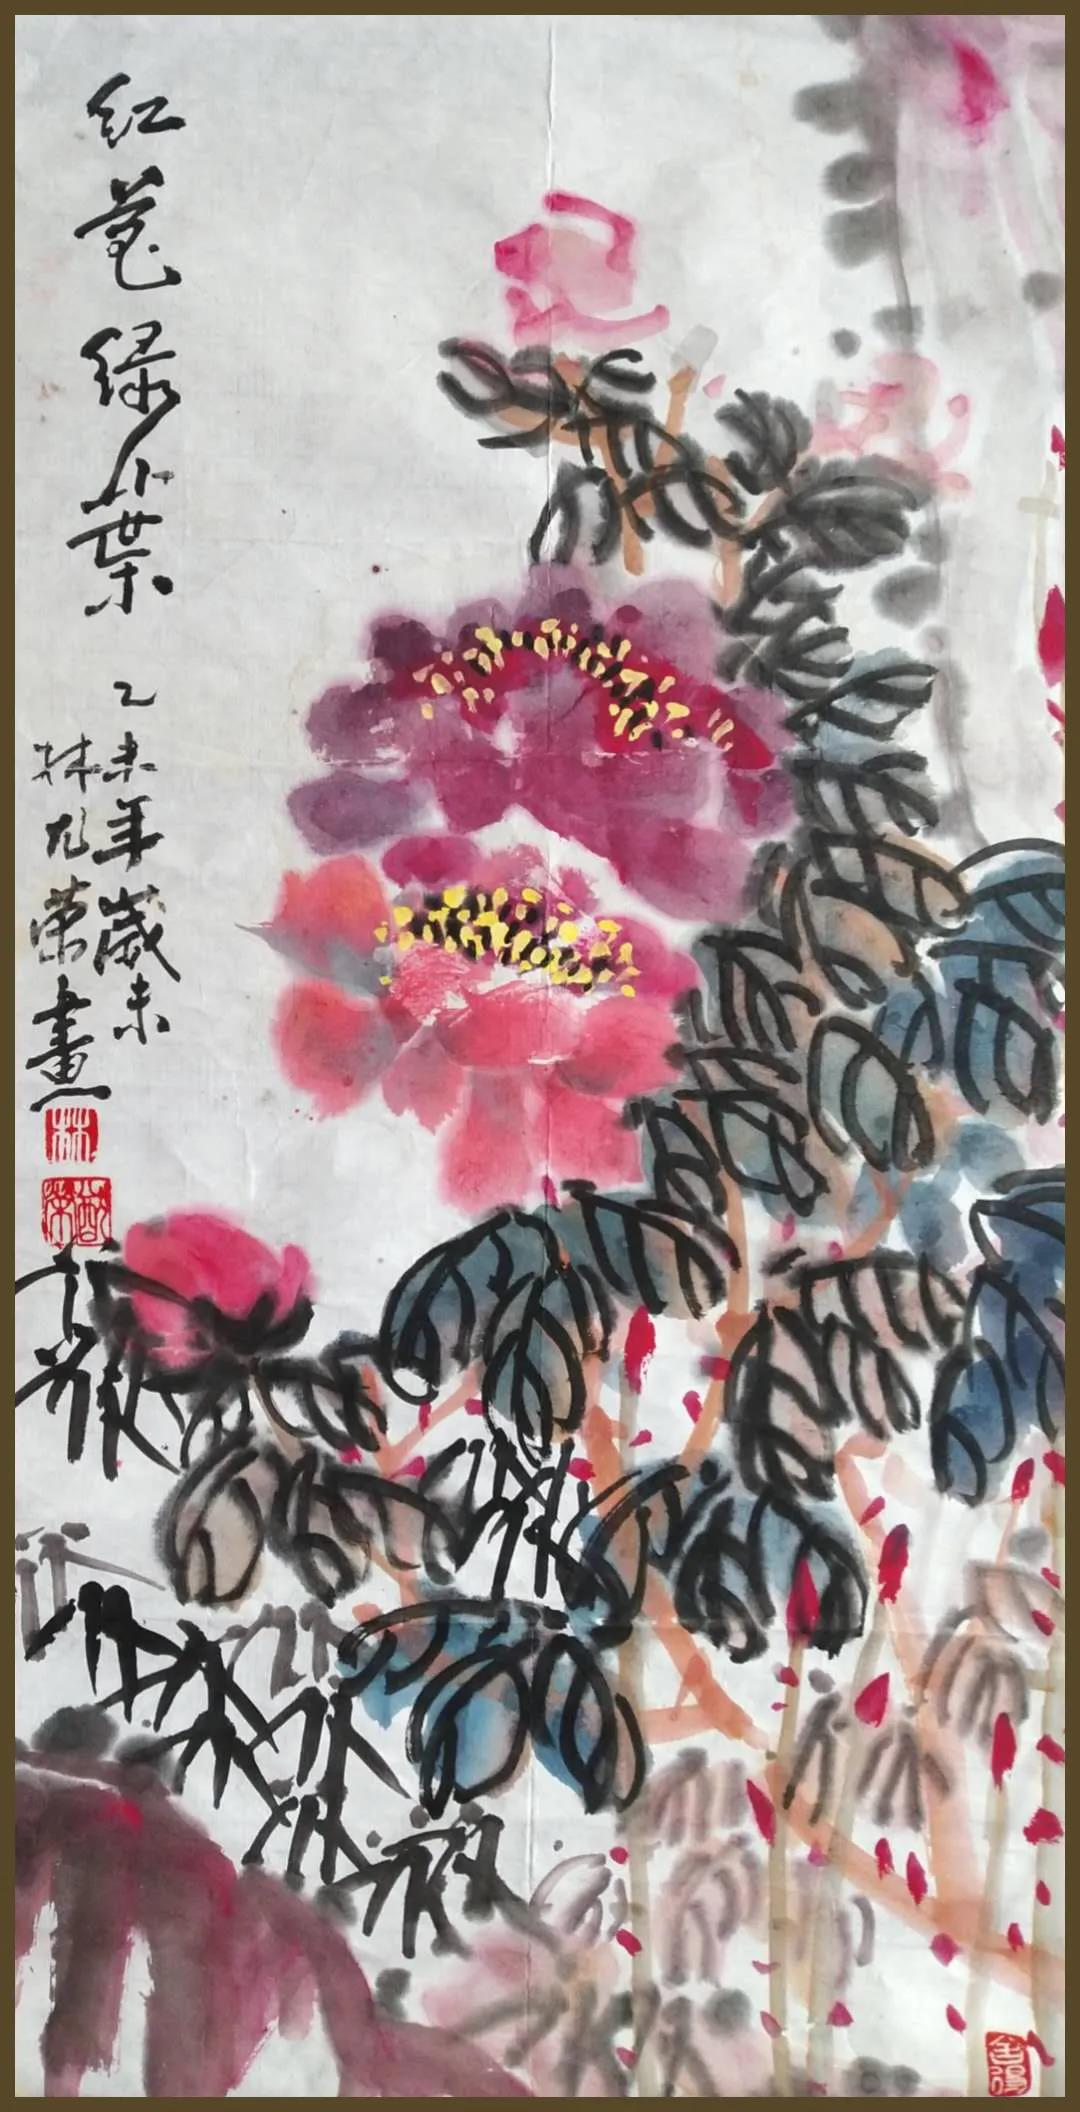 红花绿叶
乙未年岁末
林
荣画
林